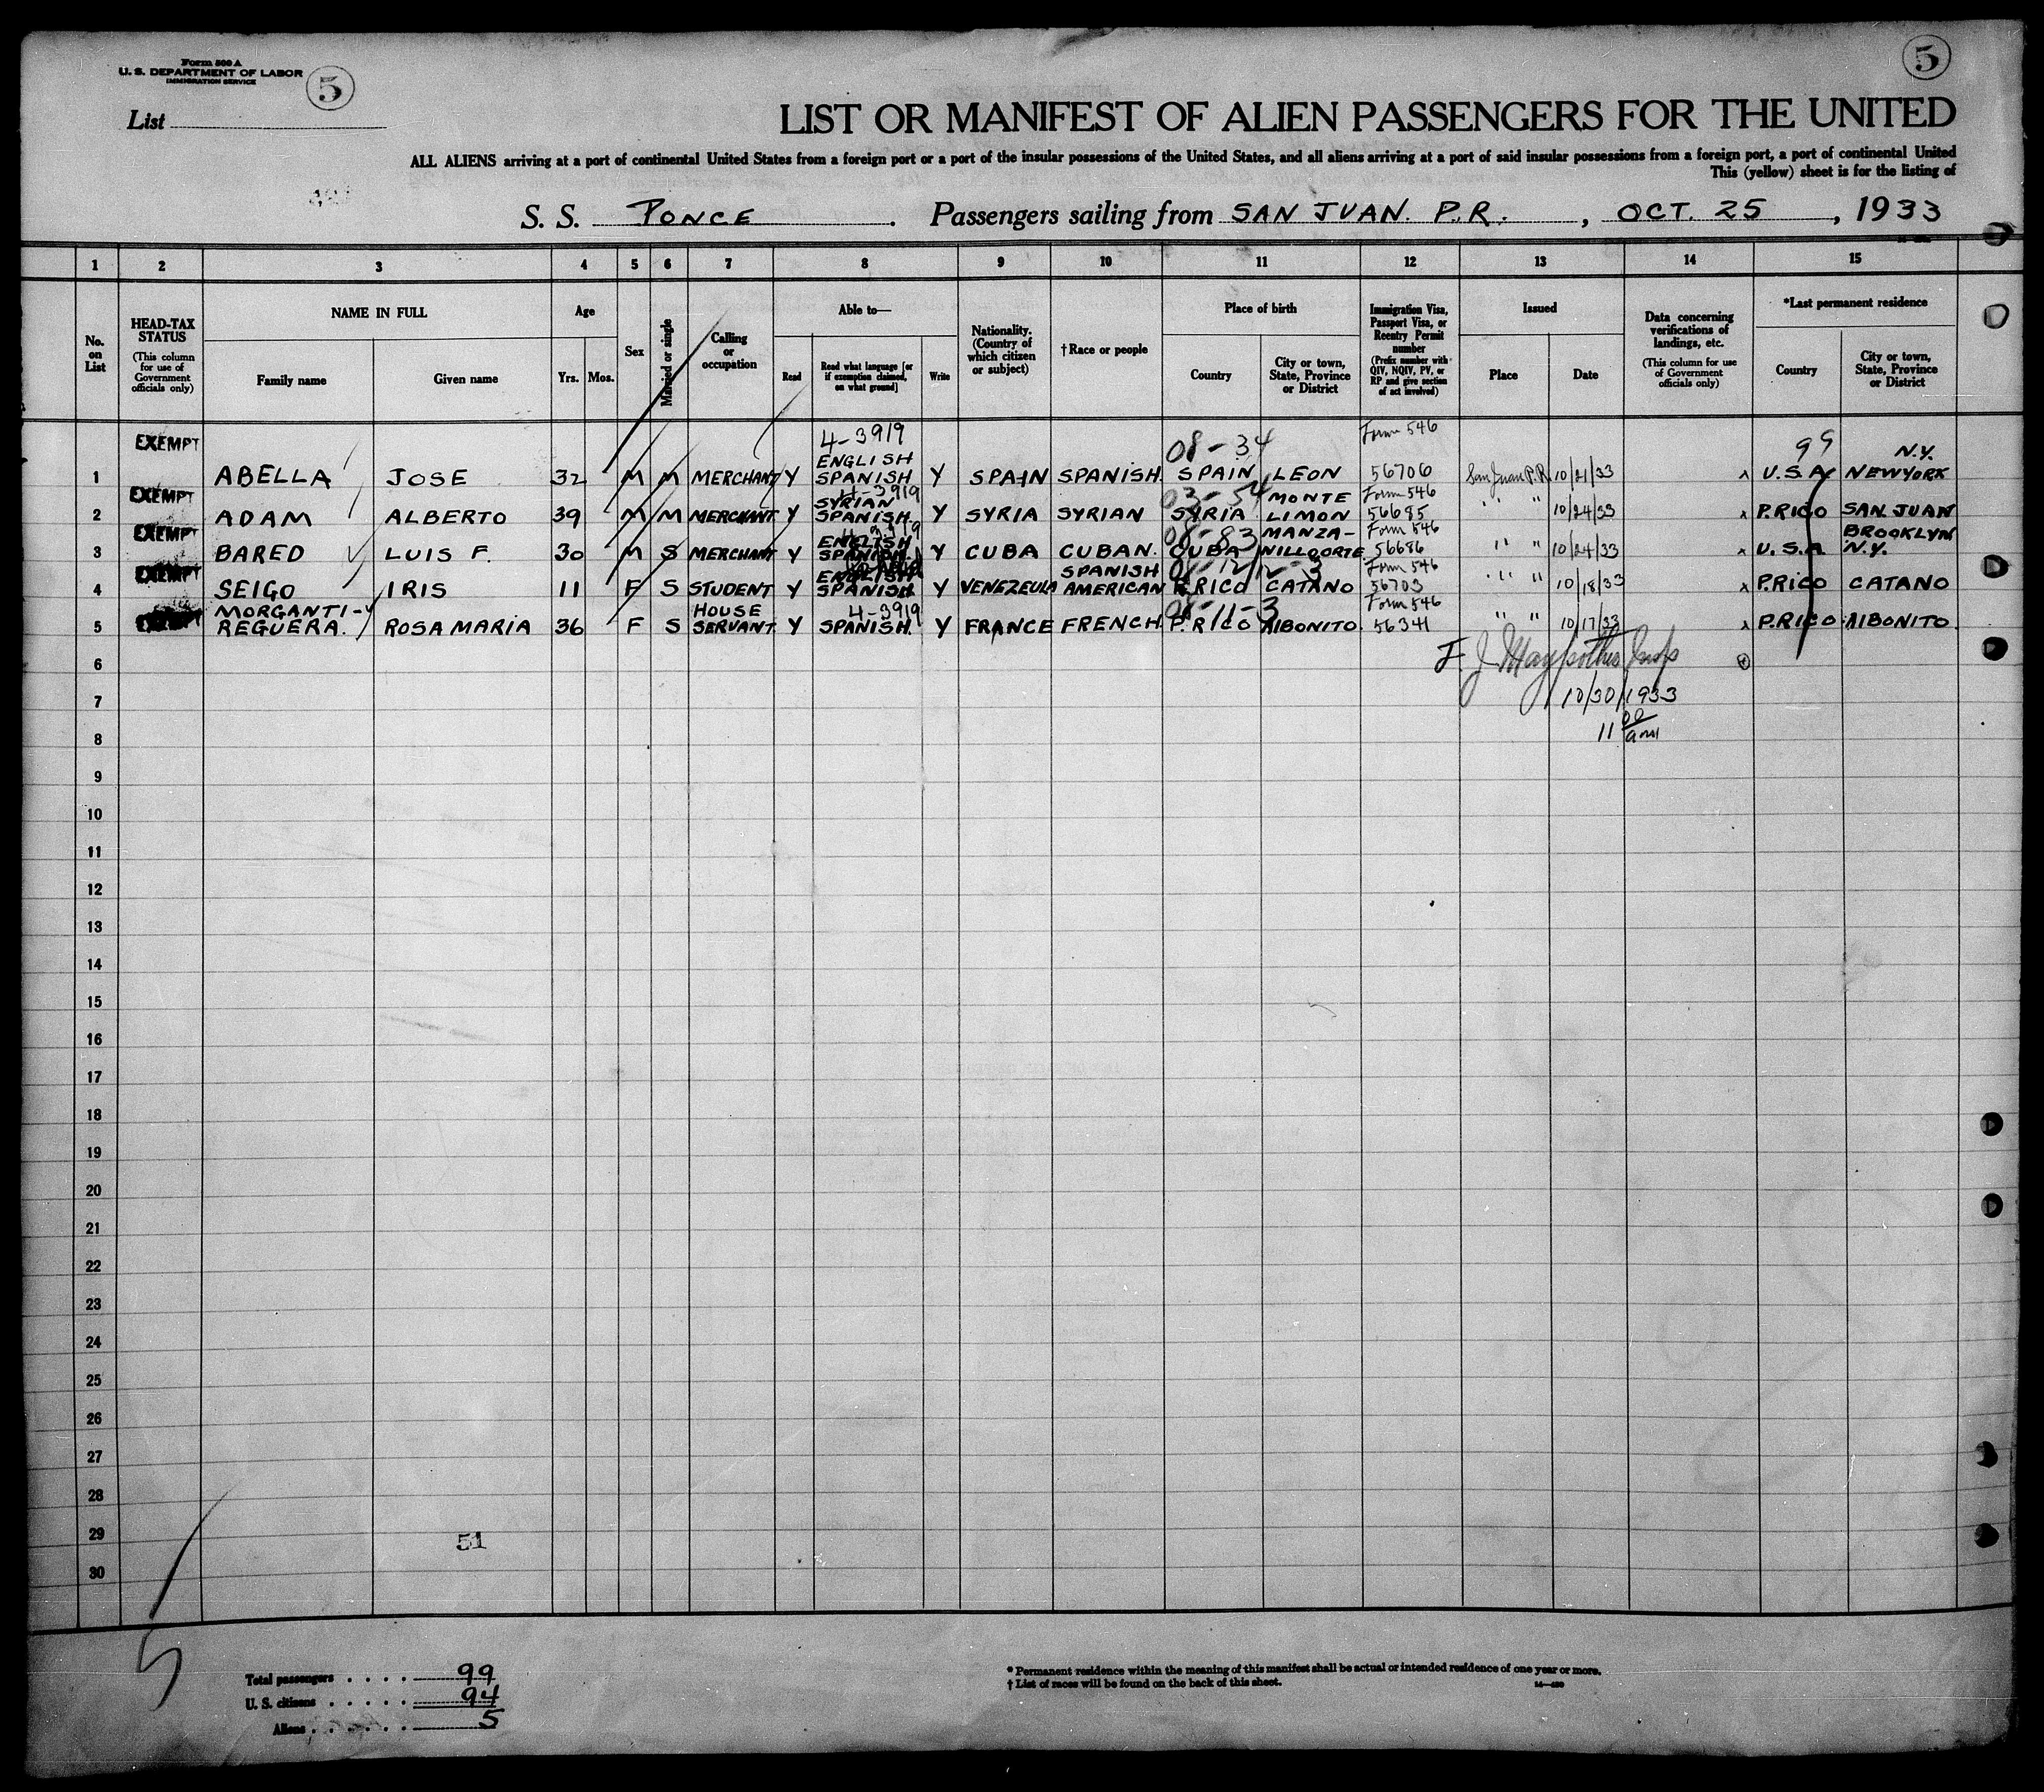 Form 500 A
U. S. DEPARTMENT OF LABOR
IMMIGRATION SERVICE
5
5
List
LIST OR MANIFEST OF ALIEN PASSENGERS FOR THE UNITED
ALL ALIENS arriving at a port of continental United States from a foreign port or a port of the insular possessions of the United States, and all aliens arriving at a port of said insular possessions from a foreign port, a port of continental United
This (yellow) sheet is for the listing of
S. S. PONCE. Passengers sailing from SAN JUAN. P.R., OCT. 25, 1933
1 2 3 4 5 6 7 8 9 10 11 12 13 14 15
No. on List
HEAD-TAX STATUS
(This column for use of Government officials only)
NAME IN FULL
Family name
Given name
Age
Yrs. Mos.
Sex
Married or single
Calling or occupation
Able to—
Read
Read what language [or if exemption claimed, on what ground]
Write
Nationality. (Country of which citizen or subject)
†Race or people
Place of birth
Country
City or town, State, Province or District
Immigration Visa, Passport Visa, or Reentry Permit number
(Prefix number with QIV, NQIV, PV, or RP and give section of act involved)
Issued
Place
Date
Data concerning verifications of landings, etc.
(This column for use of Government officials only)
*Last permanent residence
Country
City or town, State, Province or District
EXEMPT 4-3919 08-34 Form 546 99 N.Y.
ENGLISH
1 ABELLA JOSE 32 M M MERCHANT Y SPANISH Y SPAIN SPANISH. SPAIN LEON 56706 San Juan P.R. 10/21/33 U.S.A NEWYORK
EXEMPT 4-3919 SYRIAN 03-54 MONTE Form 546
2 ADAM ALBERTO 39 M M MERCHANT Y SPANISH. Y SYRIA SYRIAN SYRIA LIMON 56685 " " 10/24/33 P.RICO SAN JUAN
EXEMPT ENGLISH 08-83 MANZA- Form 546 BROOKLYN
3 BARED LUIS F. 30 M S MERCHANT Y SPANISH. Y CUBA CUBAN. CUBA NILLOORTE 56686 " " 10/24/33 U.S.A N.Y.
EXEMPT ENGLISH SPANISH Form 546
4 SEIGO IRIS 11 F S STUDENT Y SPANISH. Y VENEZEULA AMERICAN P.RICO CATANO 56703 " " 10/18/33 P.RICO CATANO
MORGANTI-Y HOUSE 4-3919 11-3 Form 546
5 REGUERA. ROSA MARIA 36 F S SERVANT Y SPANISH. Y FRANCE FRENCH P.RICO AIBONITO. 56341 " " 10/17/33 P.RICO AIBONITO.
6
7 10/30/1933
8 11 00 am
9
10
11
12
13
14
15
16
17
18
19
20
21
22
23
24
25
26
27
28
29 51
30
5
Total passengers . . . . 99
U. S. citizens . . . . . 94
Aliens . . . . . . 5
* Permanent residence within the meaning of this manifest shall be actual or intended residence of one year or more.
† List of races will be found on the back of this sheet.